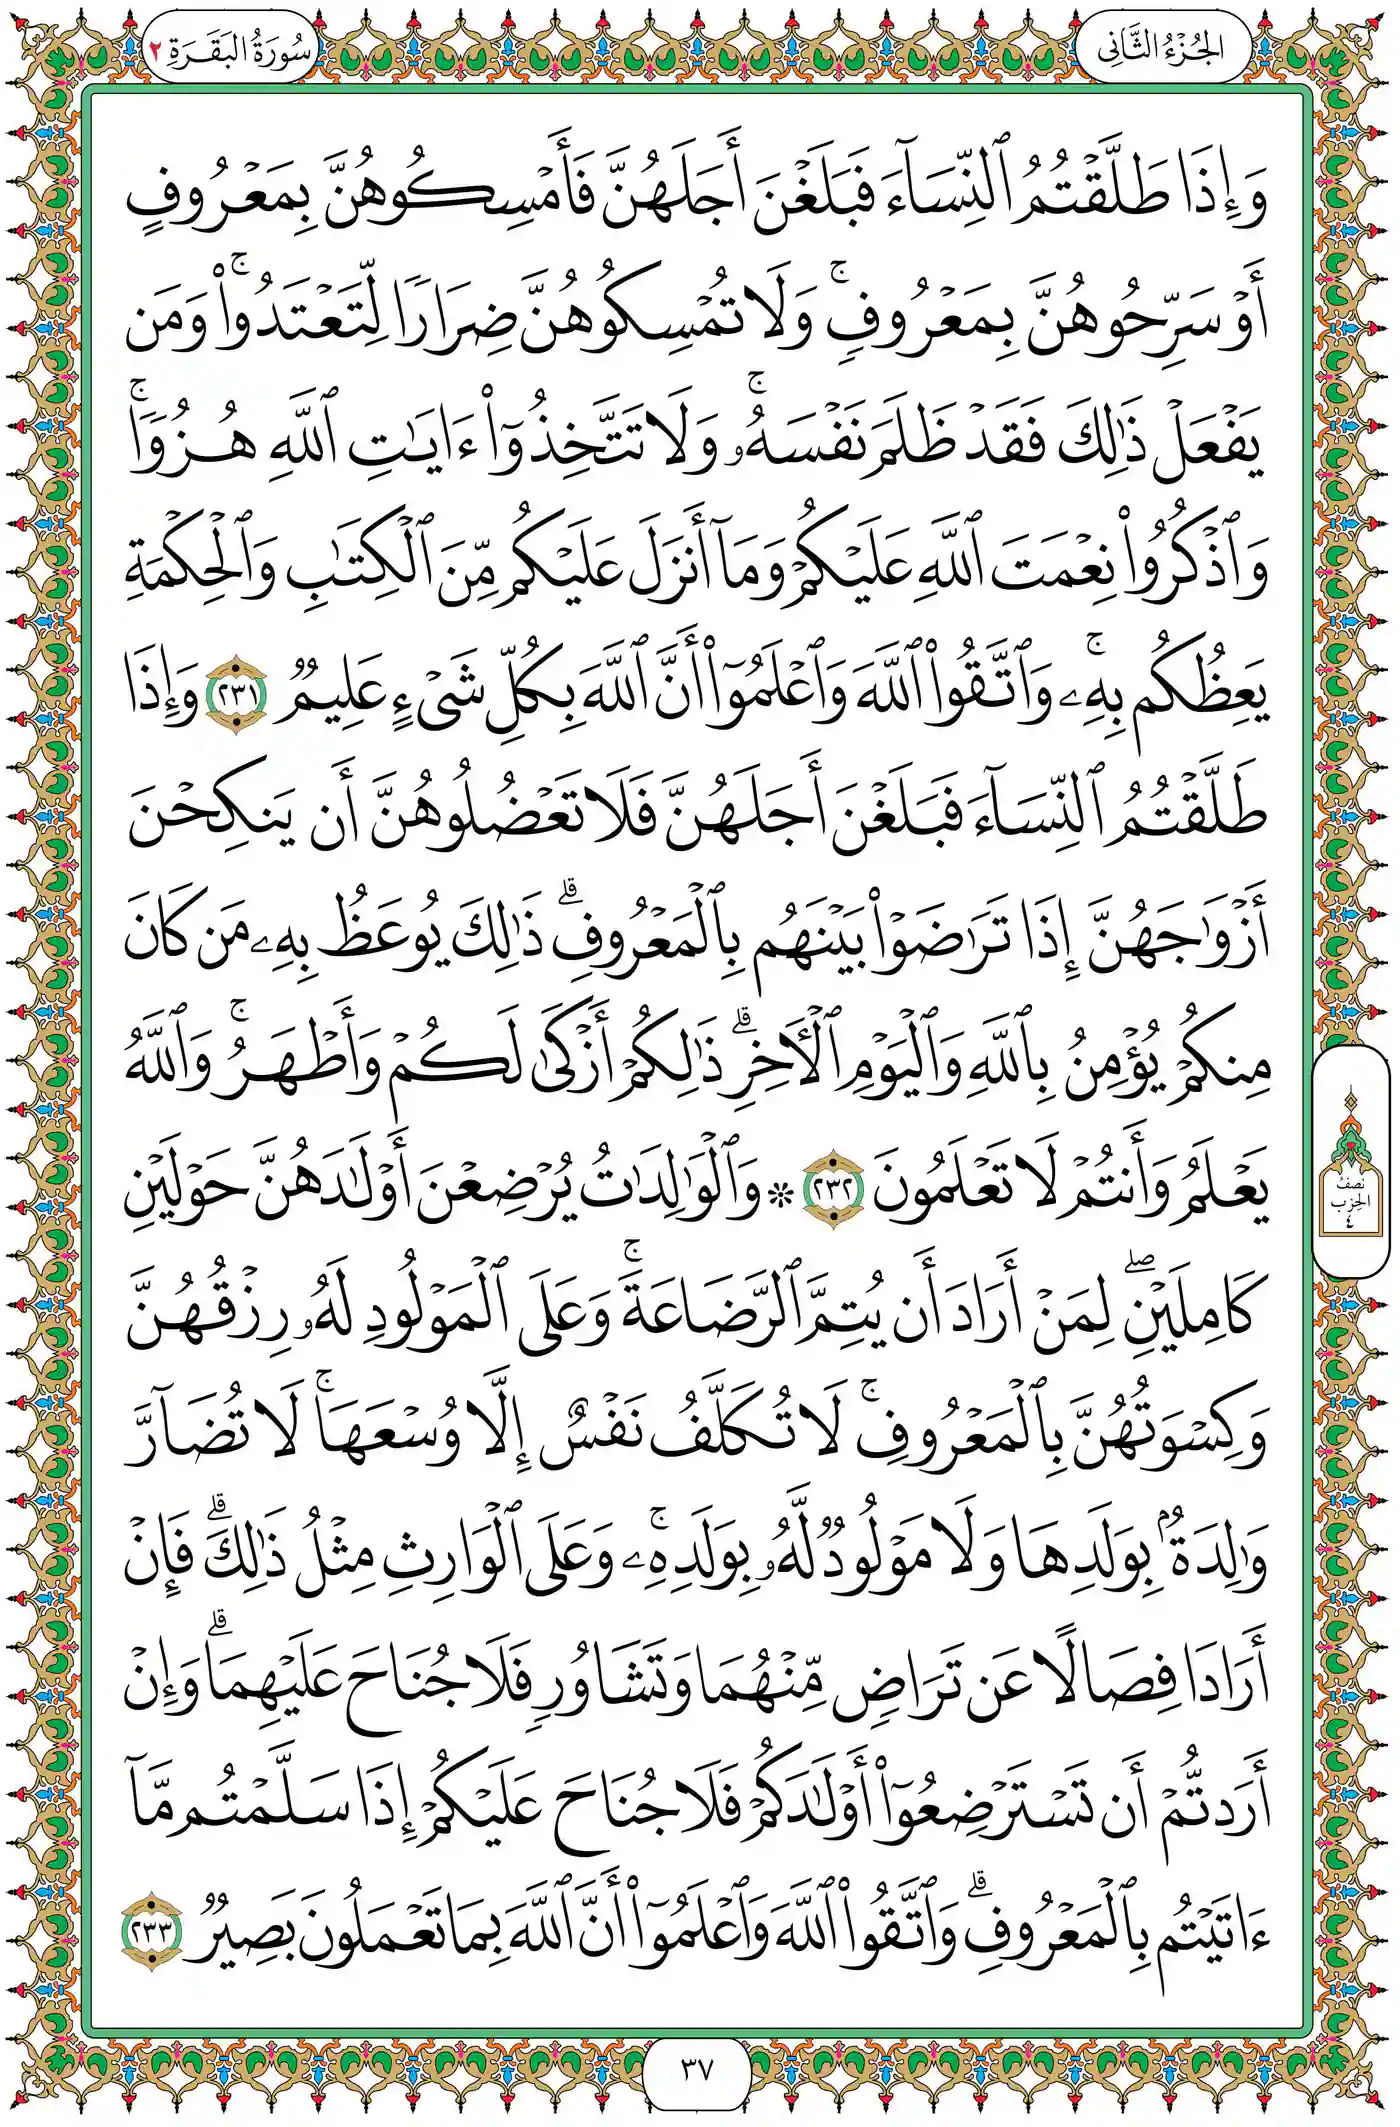 الجُزْءُ الثَّانِي
سُورَةُ البَقَرَةِ ٢
وَإِذَا طَلَّقْتُمُ ٱلنِّسَآءَ فَبَلَغْنَ أَجَلَهُنَّ فَأَمْسِكُوهُنَّ بِمَعْرُوفٍ
أَوْ سَرِّحُوهُنَّ بِمَعْرُوفٍۚ وَلَا تُمْسِكُوهُنَّ ضِرَارًا لِّتَعْتَدُوا۟ۚ وَمَن
يَفْعَلْ ذَٰلِكَ فَقَدْ ظَلَمَ نَفْسَهُۥۚ وَلَا تَتَّخِذُوٓا۟ ءَايَـٰتِ ٱللَّهِ هُزُوًاۚ
وَٱذْكُرُوا۟ نِعْمَتَ ٱللَّهِ عَلَيْكُمْ وَمَآ أَنزَلَ عَلَيْكُم مِّنَ ٱلْكِتَـٰبِ وَٱلْحِكْمَةِ
يَعِظُكُم بِهِۦۚ وَٱتَّقُوا۟ ٱللَّهَ وَٱعْلَمُوٓا۟ أَنَّ ٱللَّهَ بِكُلِّ شَىْءٍ عَلِيمٌ ٢٣١ وَإِذَا
طَلَّقْتُمُ ٱلنِّسَآءَ فَبَلَغْنَ أَجَلَهُنَّ فَلَا تَعْضُلُوهُنَّ أَن يَنكِحْنَ
أَزْوَٰجَهُنَّ إِذَا تَرَٰضَوْا۟ بَيْنَهُم بِٱلْمَعْرُوفِۗ ذَٰلِكَ يُوعَظُ بِهِۦ مَن كَانَ
مِنكُمْ يُؤْمِنُ بِٱللَّهِ وَٱلْيَوْمِ ٱلْـَٔاخِرِۗ ذَٰلِكُمْ أَزْكَىٰ لَكُمْ وَأَطْهَرُۚ وَٱللَّهُ
يَعْلَمُ وَأَنتُمْ لَا تَعْلَمُونَ ٢٣٢ ۞ وَٱلْوَٰلِدَٰتُ يُرْضِعْنَ أَوْلَـٰدَهُنَّ حَوْلَيْنِ
كَامِلَيْنِۖ لِمَنْ أَرَادَ أَن يُتِمَّ ٱلرَّضَاعَةَۚ وَعَلَى ٱلْمَوْلُودِ لَهُۥ رِزْقُهُنَّ
وَكِسْوَتُهُنَّ بِٱلْمَعْرُوفِۚ لَا تُكَلَّفُ نَفْسٌ إِلَّا وُسْعَهَاۚ لَا تُضَآرَّ
وَٰلِدَةٌۢ بِوَلَدِهَا وَلَا مَوْلُودٌ لَّهُۥ بِوَلَدِهِۦۚ وَعَلَى ٱلْوَارِثِ مِثْلُ ذَٰلِكَۗ فَإِنْ
أَرَادَا فِصَالًا عَن تَرَاضٍ مِّنْهُمَا وَتَشَاوُرٍ فَلَا جُنَاحَ عَلَيْهِمَاۗ وَإِنْ
أَرَدتُّمْ أَن تَسْتَرْضِعُوٓا۟ أَوْلَـٰدَكُمْ فَلَا جُنَاحَ عَلَيْكُمْ إِذَا سَلَّمْتُم مَّآ
ءَاتَيْتُم بِٱلْمَعْرُوفِۗ وَٱتَّقُوا۟ ٱللَّهَ وَٱعْلَمُوٓا۟ أَنَّ ٱللَّهَ بِمَا تَعْمَلُونَ بَصِيرٌ ٢٣٣
نصف
الحزب
٤
٣٧